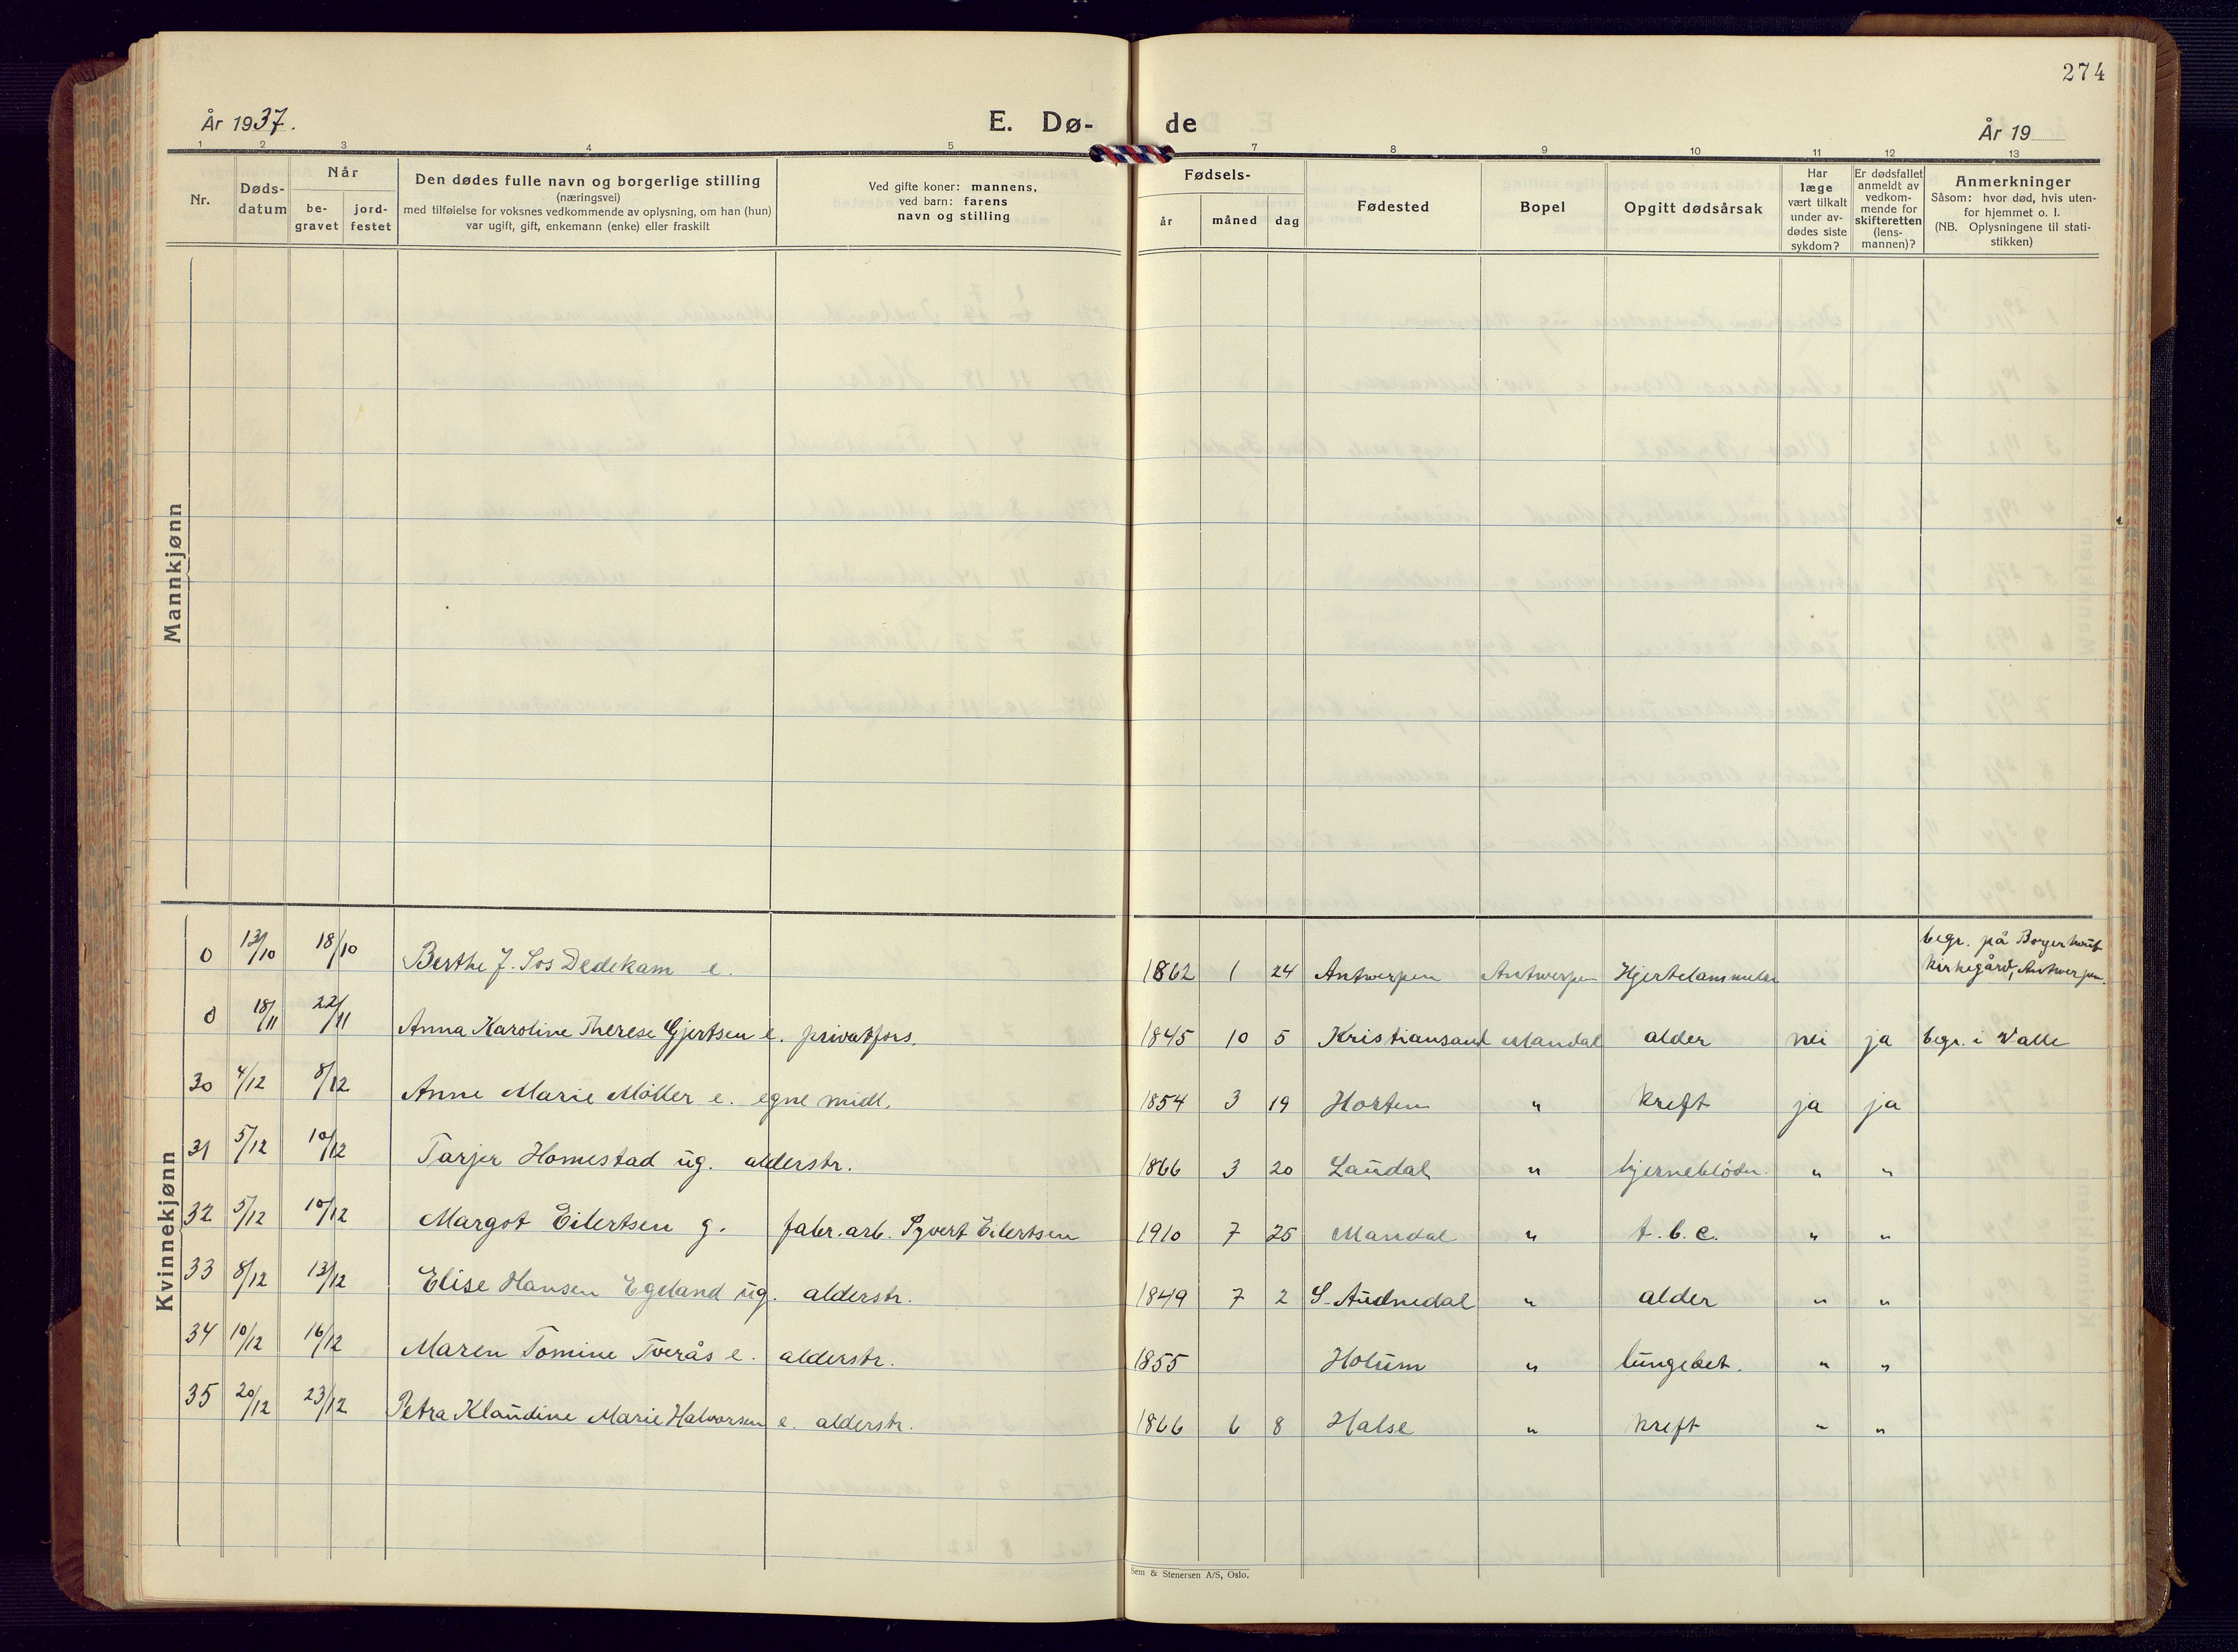 274
År 1937.
E. Dø- de
År 19
1 2 3 4 5 7 8 9 10 11 12 13
Nr.
Døds-
datum
Når
be-
gravet
jord-
festet
Den dødes fulle navn og borgerlige stilling
(næringsvei)
med tilføielse for voksnes vedkommende av oplysning, om han (hun)
var ugift, gift, enkemann (enke) eller fraskilt
Ved gifte koner: mannens,
ved barn: farens
navn og stilling
Fødsels-
år
måned
dag
Fødested
Bopel
Opgitt dødsårsak
Har
læge
vært tilkalt
under av-
dødes siste
sykdom?
Er dødsfallet
anmeldt av
vedkom-
mende for
skifteretten
(lens-
mannen)?
Anmerkninger
Såsom: hvor død, hvis uten-
for hjemmet o. l.
(NB. Oplysningene til stati-
stikken)
Mannkjønn
Kvinnekjønn
0 13/10 18/10 Berthe J. Sos Dedekam e. 1862 1 24 Antwerpen Antwerpen Hjertelammelse begr. på Borgerhout
kirkegård, Antwerpen.
0 18/11 22/11 Anna Karoline Therese Gjertsen e. privatfors. 1845 10 5 Kristiansand Mandal alder nei ja begr. i Valle
30 4/12 8/12 Anne Marie Möller e. egne midl. 1854 3 19 Horten " kreft ja ja
31 5/12 10/12 Tarjer Homestad ug. alderstr. 1866 3 20 Laudal " hjerneblödn. " "
32 5/12 10/12 Margot Eilertsen g. fabr. arb. Syvert Eilertsen 1910 7 25 Mandal " t. b. c. " "
33 8/12 13/12 Elise Hansen Egeland ug. alderstr. 1849 7 2 S-Audnedal " alder " "
34 10/12 16/12 Maren Tomine Tverås e. alderstr. 1855 Holum " lungebet. " "
35 20/12 23/12 Petra Klaudine Marie Halvorsen e. alderstr. 1866 6 8 Halse " kreft " "
Sem & Stenersen A/S, Oslo.